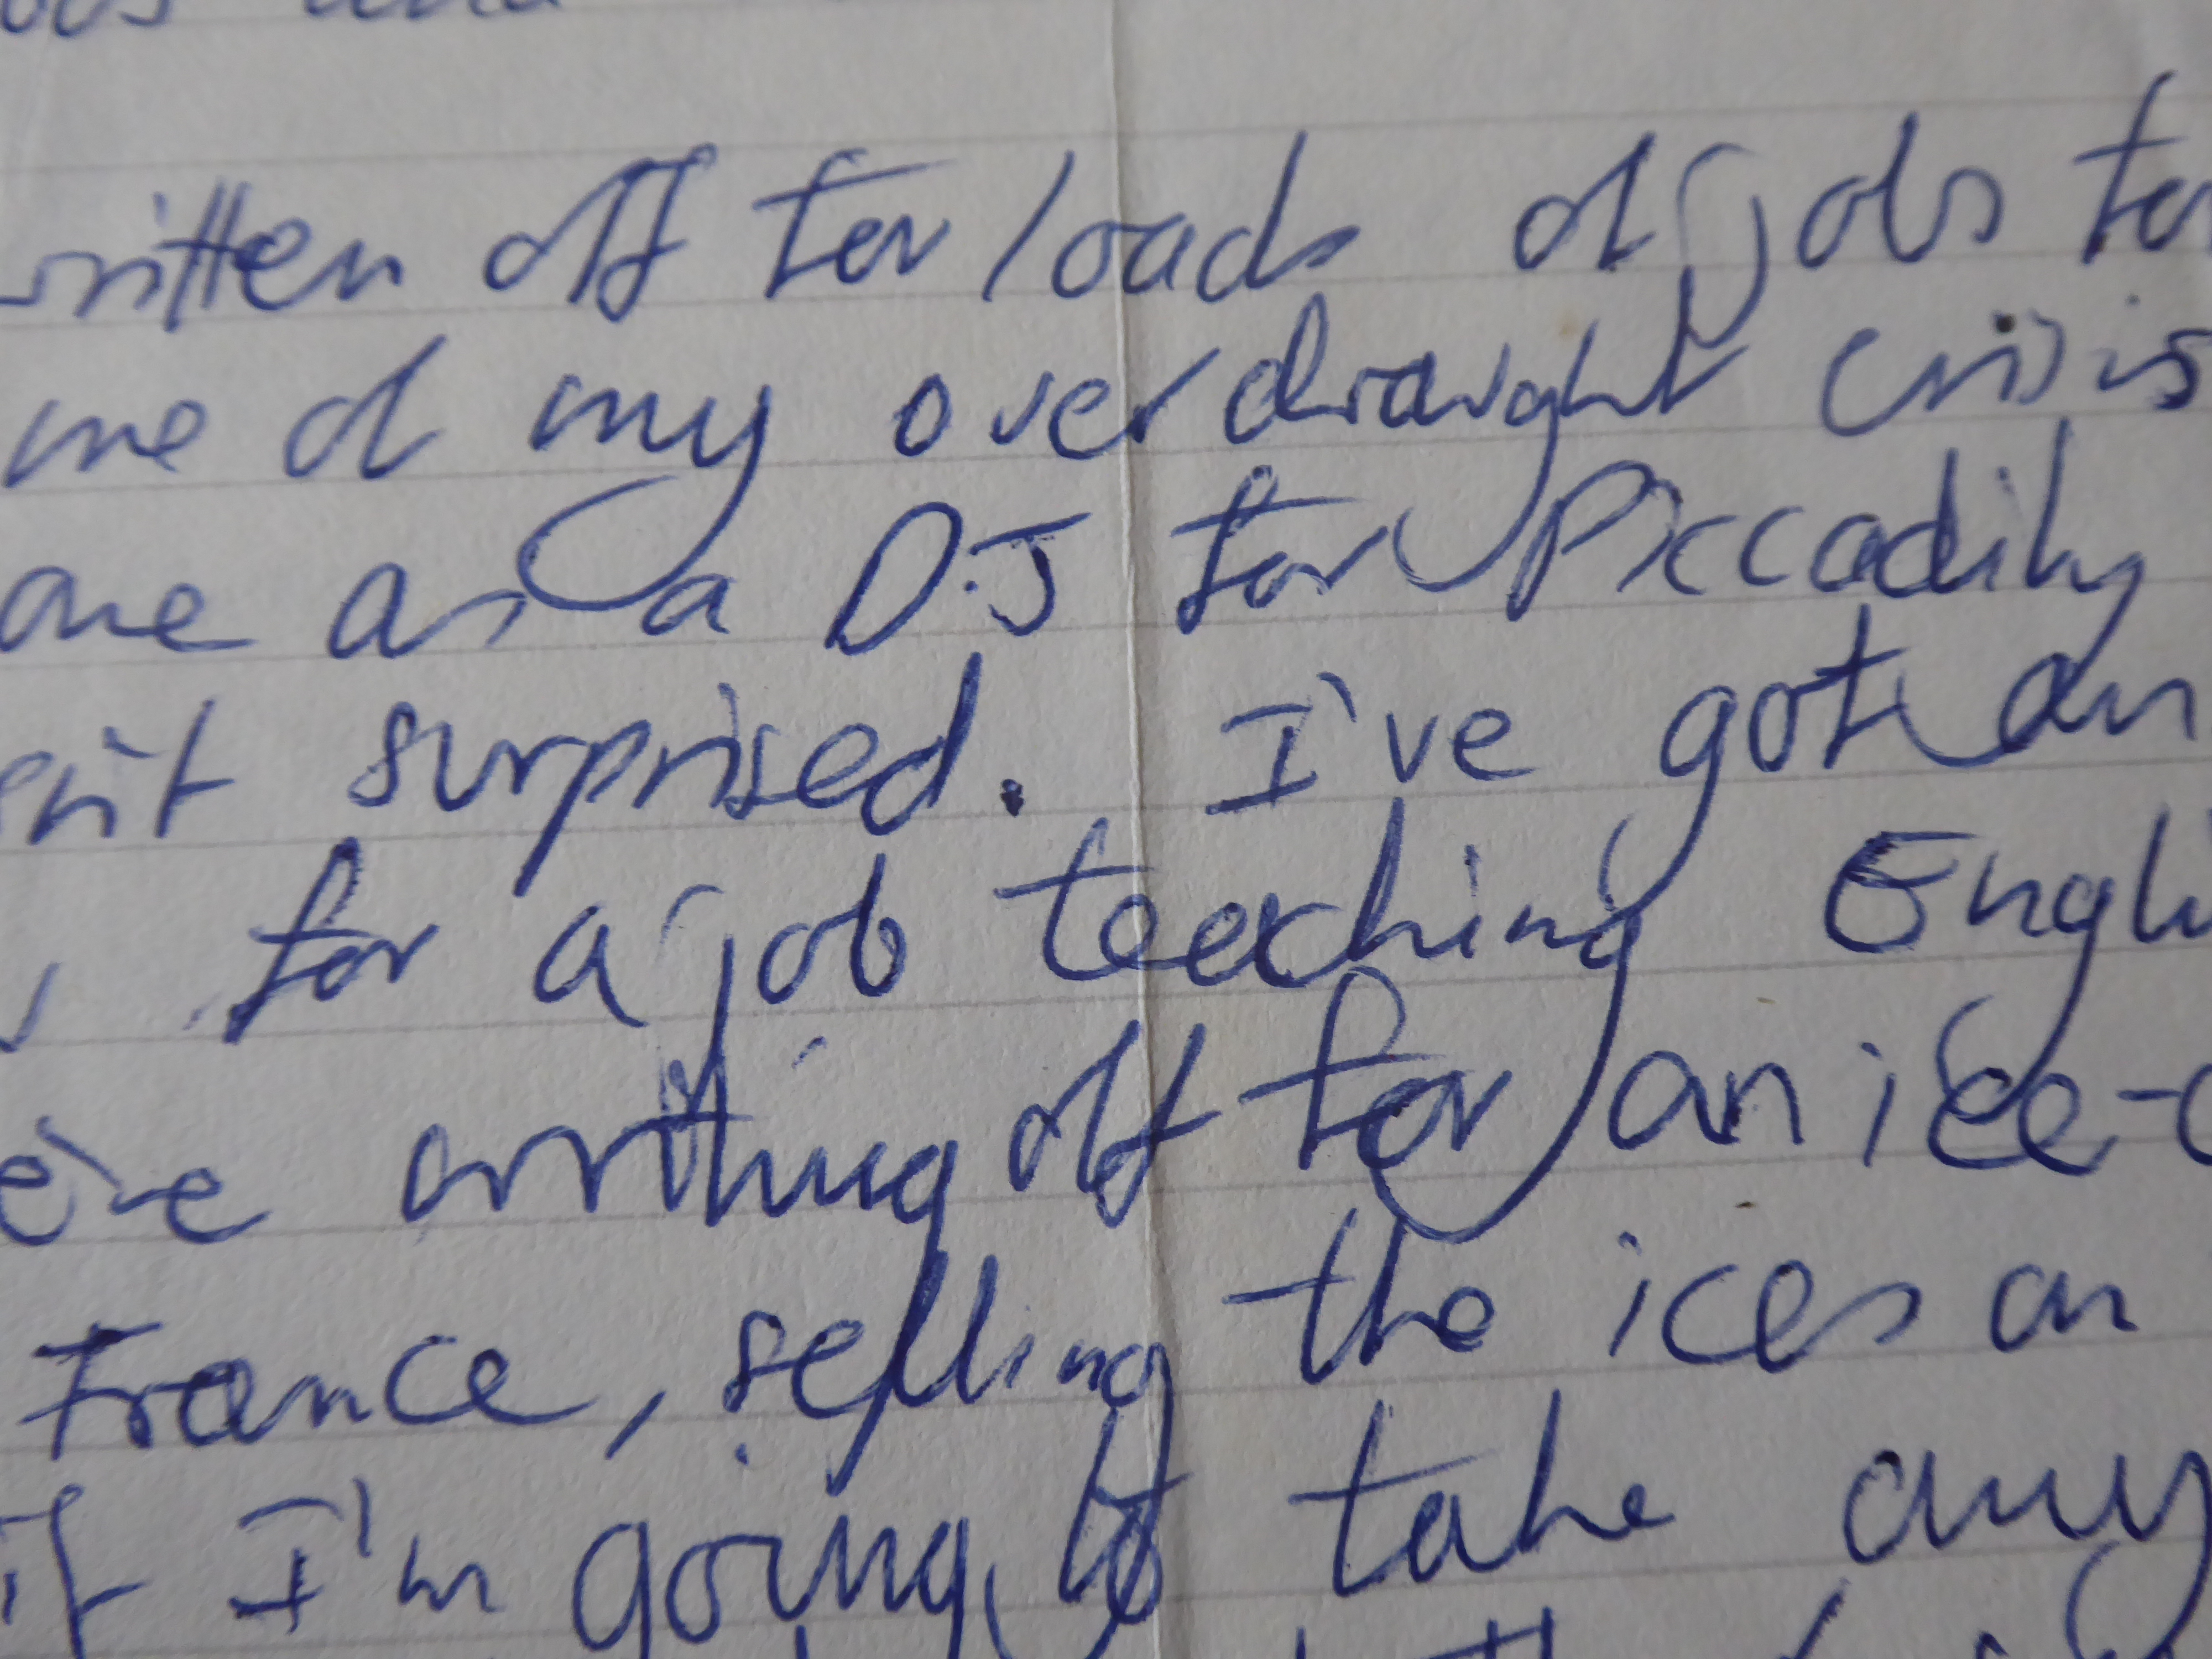 and
written off for loads of jobs to
me of my overdraught crisis
one as a D.J for Piccadilly
isn't surprised. I've got an
, for a job teaching Engli
e're writing off for an ice-c
France, selling the ices on
if I'm going to take any